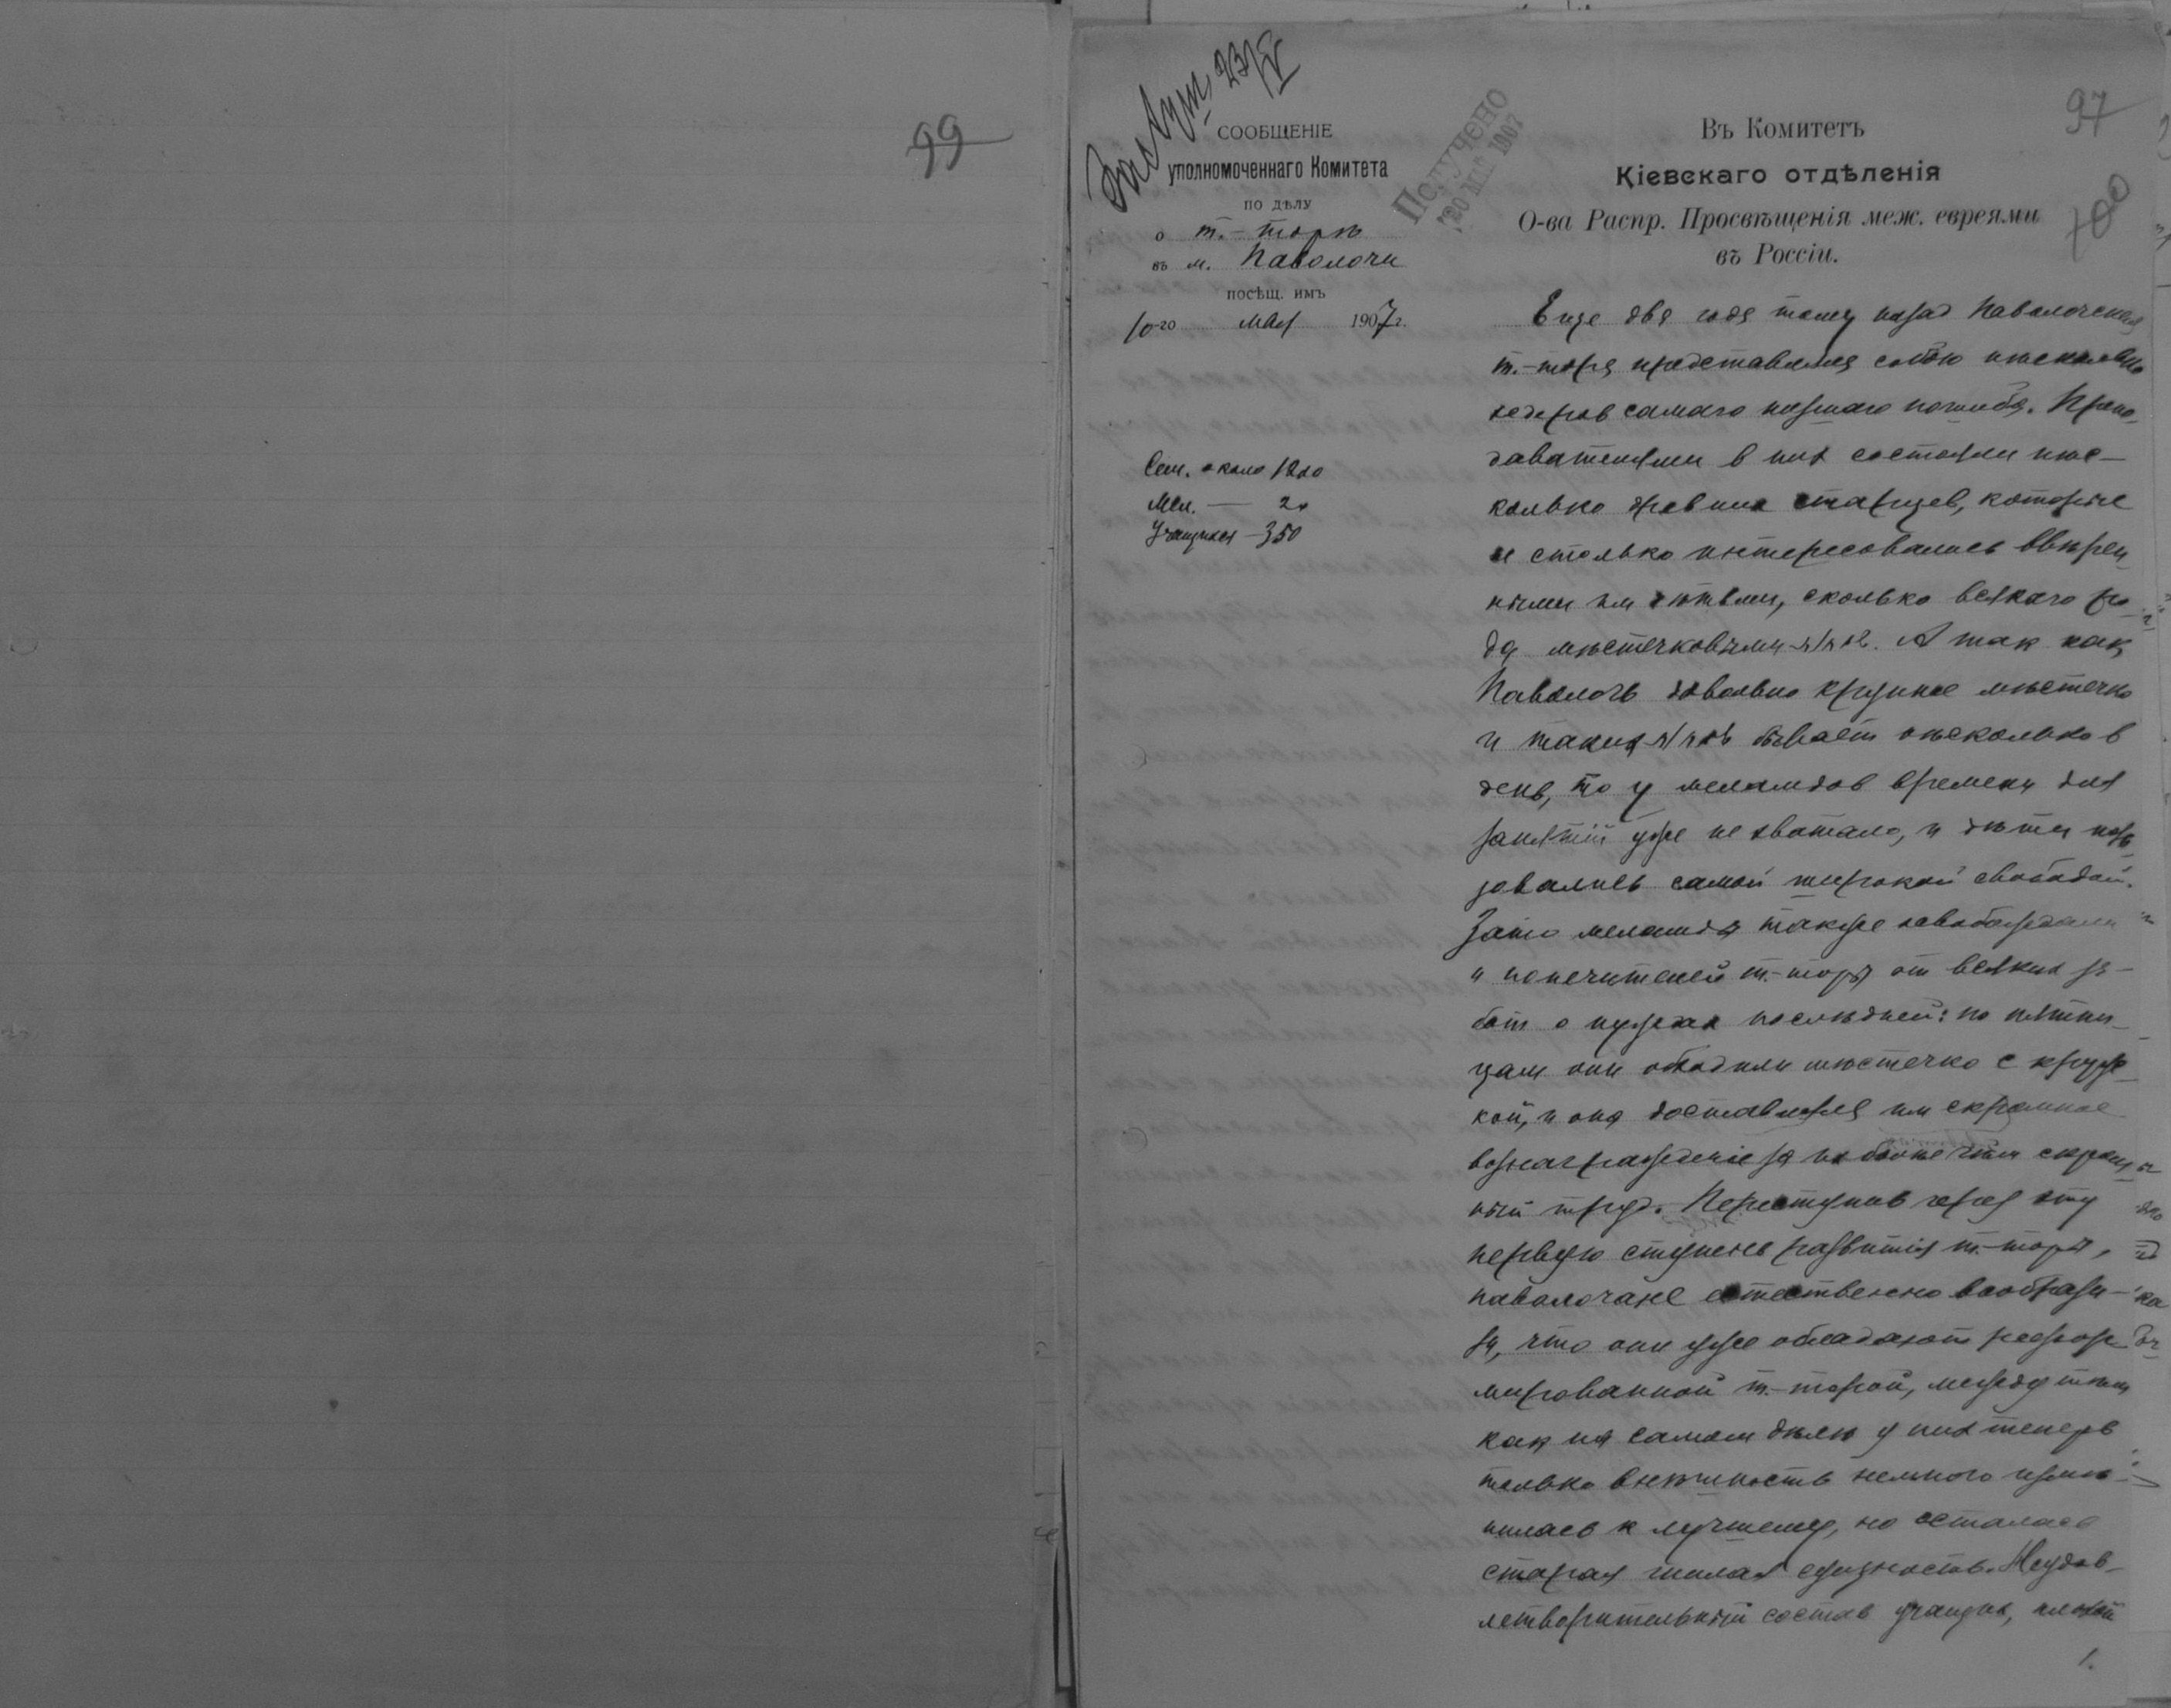 99
Заслуш. 23/V
СООБЩЕНІЕ
уполномоченнаго Комитета
по дѣлу
о т.-торѣ
въ м. Паволочи
посѣщ. имъ
10-го мая 1907 г.
Сем. около 1200
Мел. — 20
Учащихся — 350
Получено
20 1907
97
100
Въ Комитетъ
Кіевскаго отдѣленія
О-ва Распр. Просвѣщенія меж. евреями
въ Россіи.
Еще два года тому назад Паволочская
т.-тора представляла собою нѣсколько
хедеров самаго низшаго пошиба. Препо-
давателями в них состояли нѣс-
колько древних старцев, которые
не столько интересовались ввѣрен-
ными им дѣтьми, сколько всякаго ро-
да мѣстечковыми. А так как
Паволочь довольно крупное мѣстечко
и таких бывает нѣсколько в
день, то у меламдов времени для
занятій уже не хватало, и дѣти поль-
зовались самой широкой свободой.
Зато меламды также освобождали
и попечителей т.-торы от всяких за-
бот о нуждах послѣдней: по пятни-
цам они обходили мѣстечко с круж-
кой, и она доставляла им скромное
вознагражденіе за их болѣе чѣм скром-
ный труд. Переступив через эту
первую ступень развитія т.-торы,
паволочане естественно вообрази-
ли, что они уже обладают рефор-
мированной т.-торой, между тѣм
как на самом дѣлѣ у них теперь
только внѣшность немного измѣ-
нилась к лучшему, но осталась
старая гнилая сущность. Неудов-
летворительный состав учащих, плохой
1.